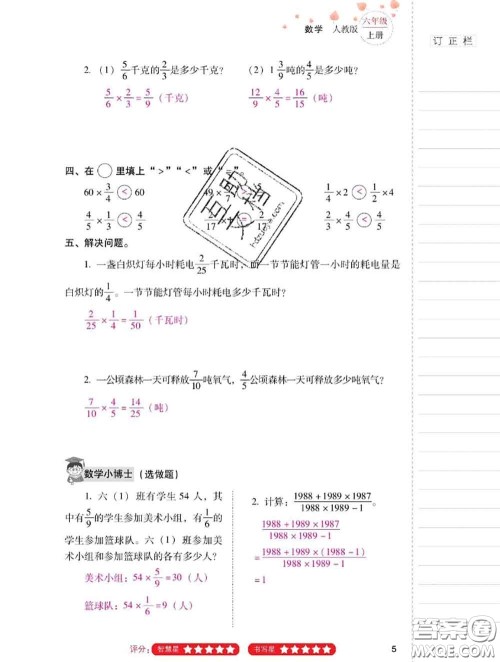 数学 人教版 六年级上册
订正栏
2. (1) 5/6千克的2/3是多少千克? (2) 1 3/9吨的4/5是多少吨?
5/6×2/3=5/9(千克) 12/9×4/5=16/15(吨)
四、在○里填上“>”“<”或
60×3/4 < 60 1/4×2 < 1/2×4
4/5×1/3 < 4/5 4/5
五、解决问题。
1. 一盏白炽灯每小时耗电2/25千瓦时,而一节节能灯管一小时的耗电量是
白炽灯的1/4。一节节能灯管每小时耗电多少千瓦时?
2/25×1/4=1/50(千瓦时)
2. 一公顷森林一天可释放7/10吨氧气,4/5公顷森林一天可释放多少吨氧气?
7/10×4/5=14/25(吨)
数学小博士(选做题)
1. 六(1)班有学生54人,其
中有5/9的学生参加美术小组,有1/6的
学生参加篮球队。六(1)班参加美
术小组和参加篮球队的各有多少人?
美术小组:54×5/9=30(人)
篮球队:54×1/6=9(人)
2. 计算:(1988+1989×1987)/(1988×1989-1)
(1988+1989×1987)/(1988×1989-1)
=(1988+1989×(1988-1))/(1988×1989-1)
=1
评分: 智慧星 ★★★★★ 书写星 ★★★★★
5
答案圈
MXQE.COM